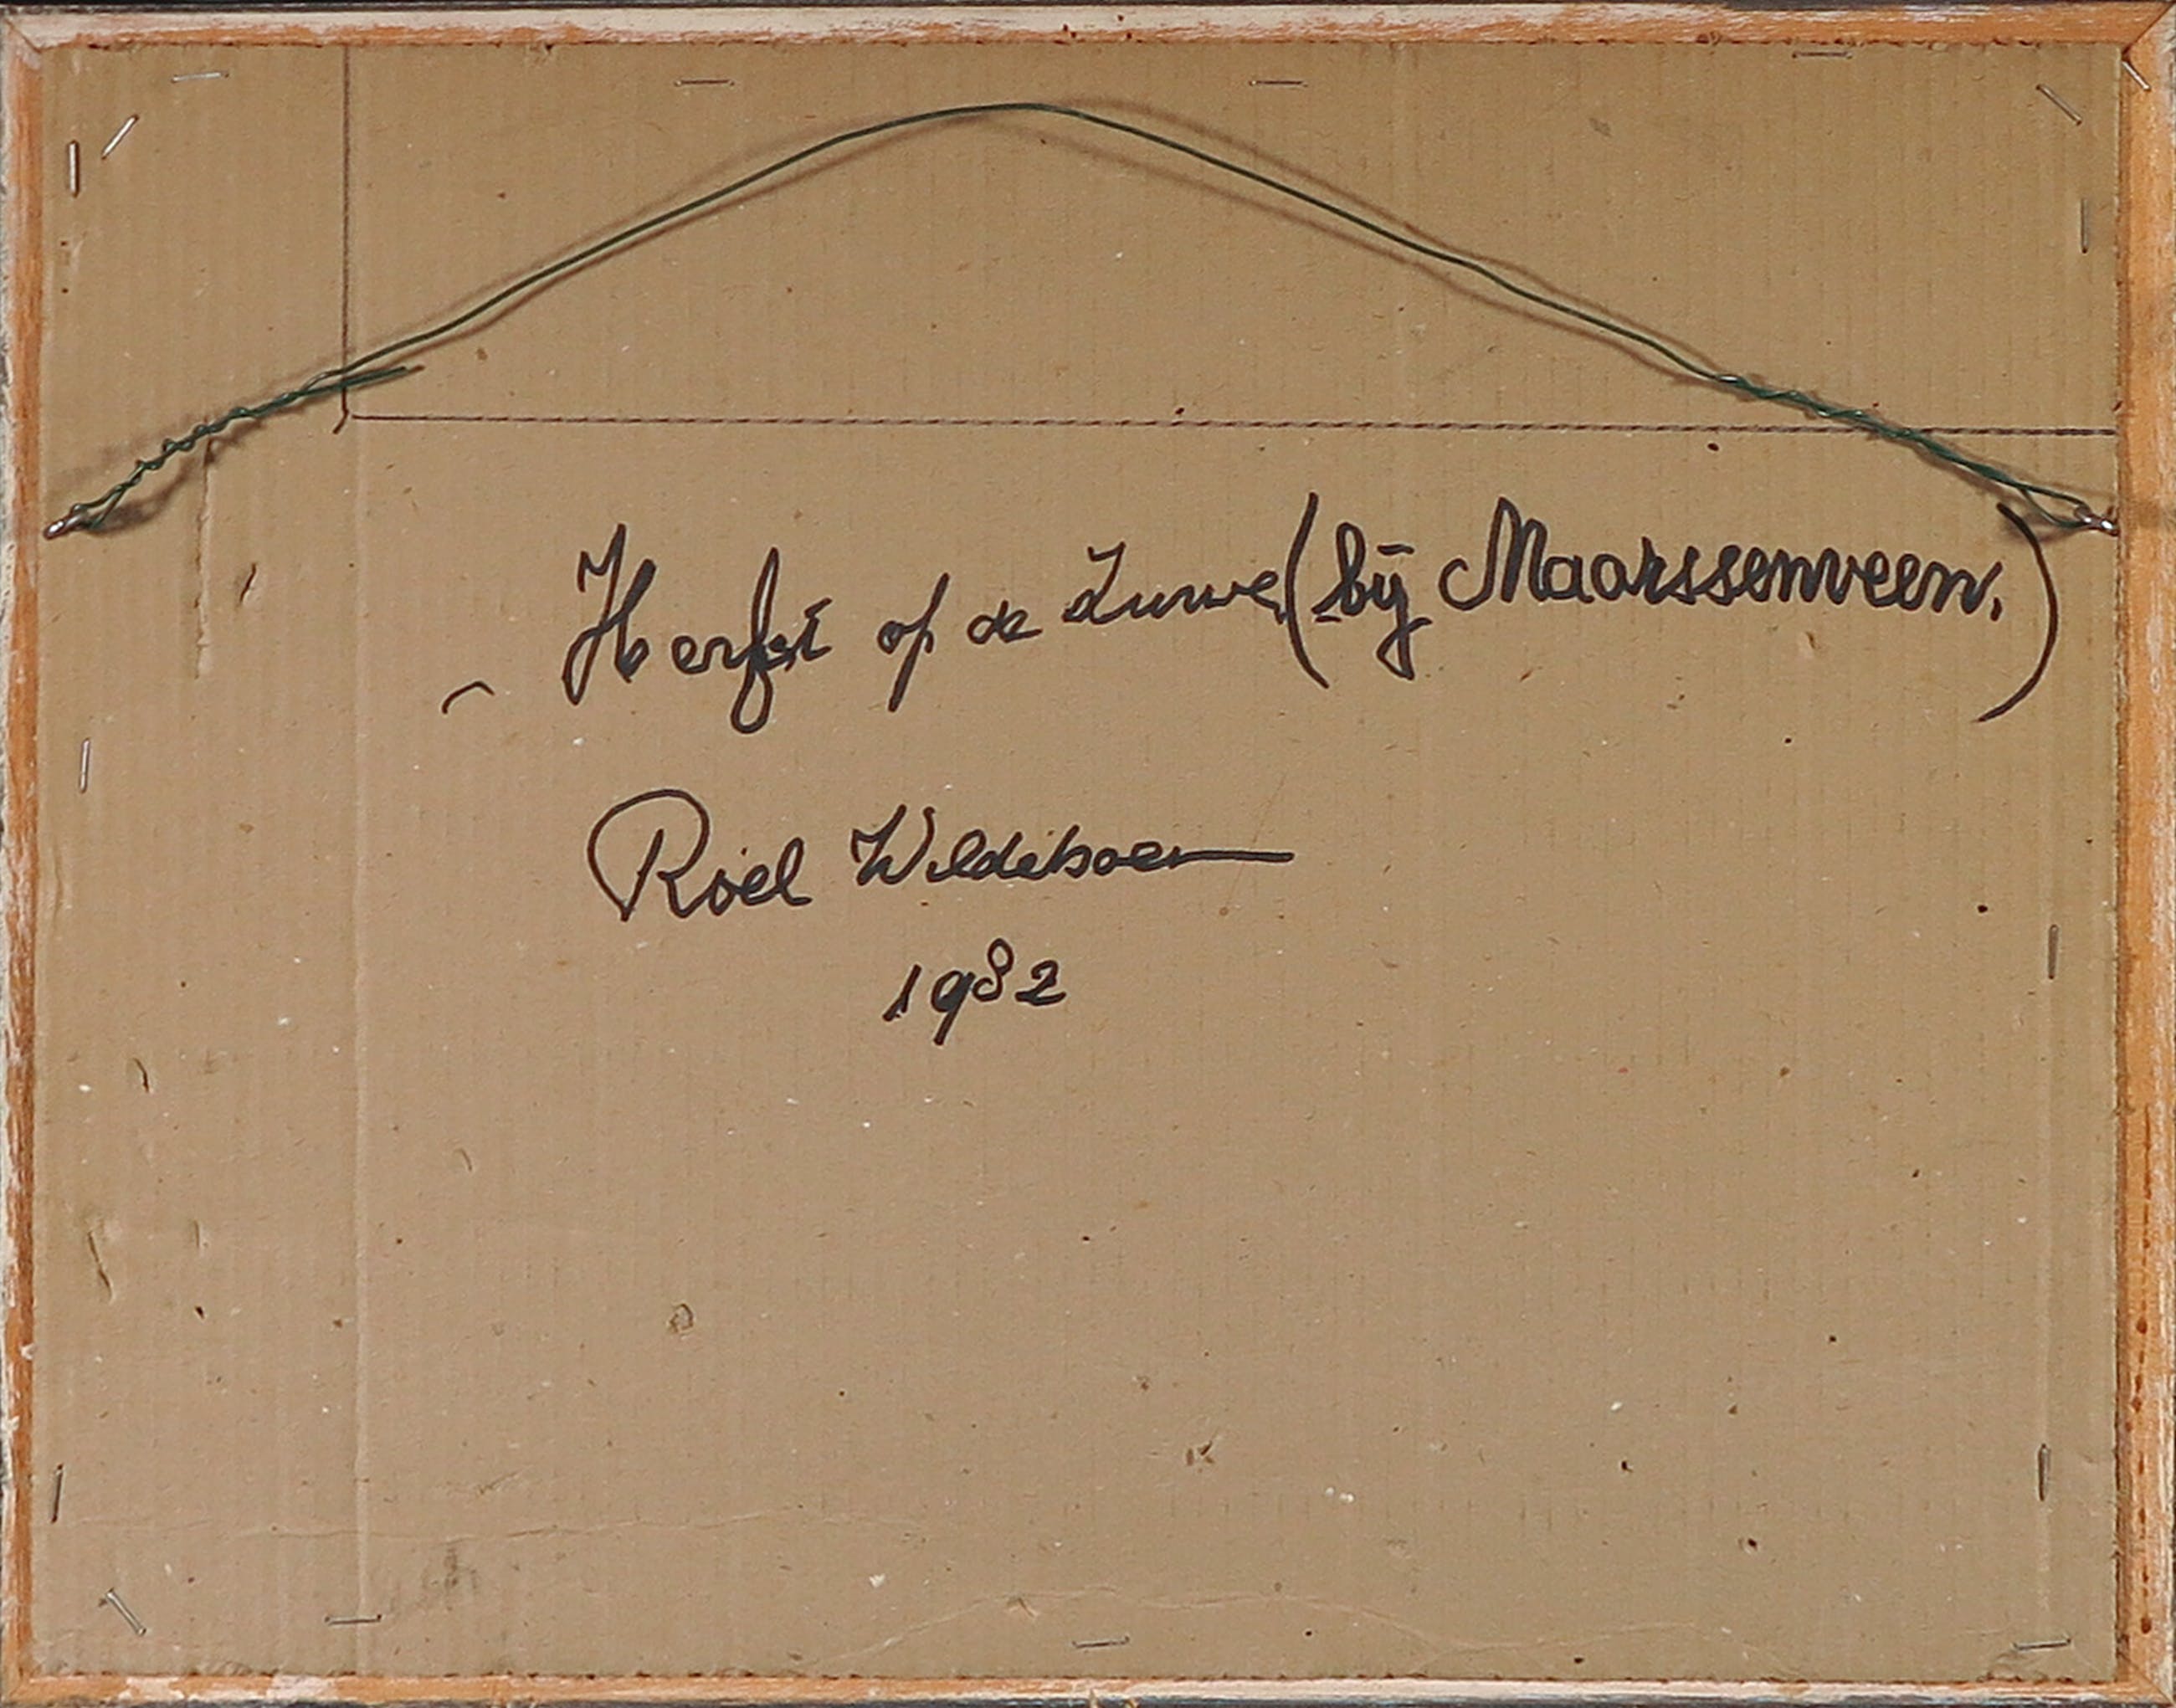 Herfst op de Zuwe (bij Maarssenveen.)
Roel Wildeboer
1982